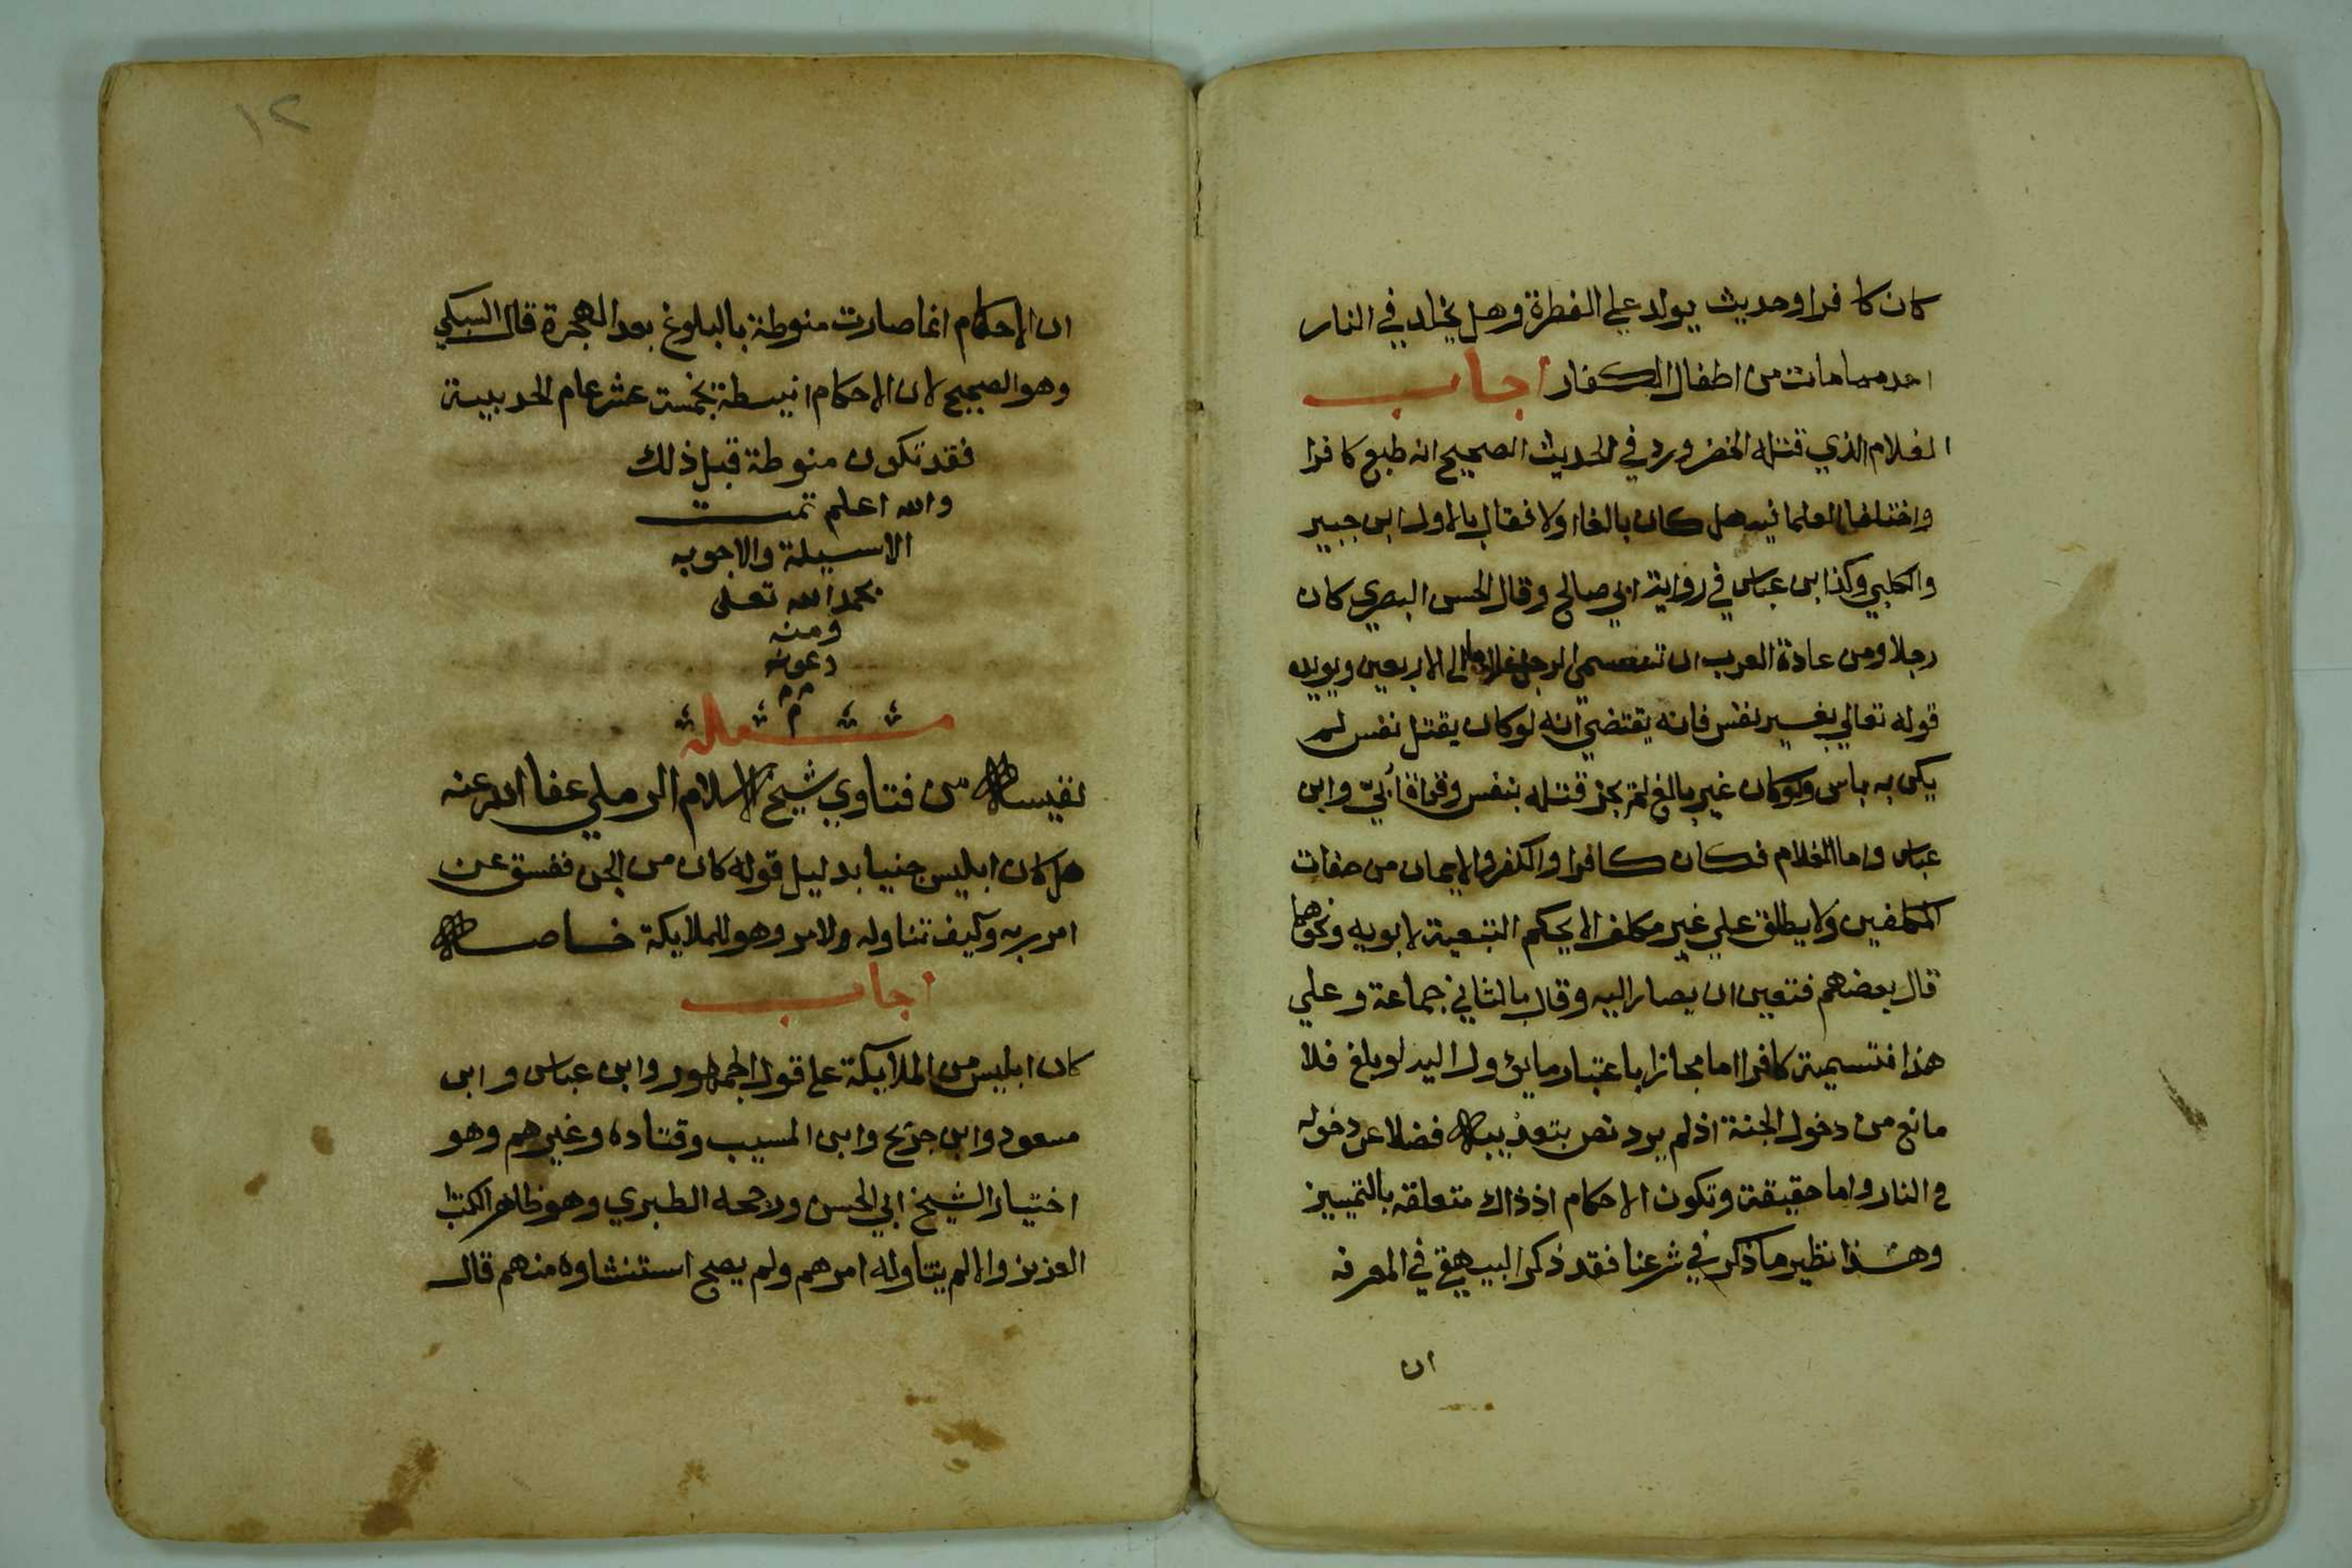 كان كافرا وحديث يولد علي الفطرة وهل يخلد في النار
احد مما مات من اطفال الكفار اجاب
الغلام الذي قتله الخضر ورد في الحديث الصحيح انه طبع كافرا
واختلف العلما فيه هل كان بالغا اولا فقال بالاول ابن جبير
والكلبي وكذا ابن عباس في رواية ابي صالح وقال الحسن البصري كان
رجلا ومن عادة العرب ان تسمي الرجل غلاما الى الاربعين ويويده
قوله تعالي بغير نفس فانه يقتضي انه لو كان يقتل نفس لم
يكن به باس ولو كان غير بالغ لم يجز قتله بنفس وقراة أبيّ وابن
عباس واما الغلام فكان كافرا والكفر والايمان من صفات
المكلفين ولا يطلق علي غير مكلف الا بحكم التبعية لابويه ونحوهما
قال بعضهم فتعين ان يصار اليه وقال بالثاني جماعة وعلي
هذا فتسميته كافرا اما مجازا باعتبار ما يؤول اليه لو بلغ فلا
مانع من دخول الجنة اذ لم يرد نص بتعذيبه فضلا عن دخوله
في النار واما حقيقة وتكون الاحكام اذ ذاك متعلقة بالتمييز
وهذا نظير ما ذكر في شرعنا فقد ذكر البيهقي في المعرفه
ان
١٢
ان الاحكام انما صارت منوطة بالبلوغ بعد الهجرة قال السبكي
وهو الصحيح لان الاحكام انيطة بخمسة عشر عام الحديبية
فقد تكون منوطة قبل ذلك
والله اعلم تمت
الاسيلة والاجوبه
بحمد الله تعلى
ومنه
وعونه
م
مسئلة
نفيسه من فتاوي شيخ الاسلام الرملي عفا الله عنه
هل كان ابليس جنيا بدليل قوله كان من الجن ففسق عن
امر ربه وكيف تناوله والامر وهو للملايكة خاصه
اجاب
كان ابليس من الملايكة على قول الجمهور وابن عباس وابن
مسعود وابن جريج وابن المسيب وقتاده وغيرهم وهو
اختيار الشيخ ابي الحسن ورجحه الطبري وهو ظاهر الكتاب
العزيز والا لم يتناوله امرهم ولم يصح استثناوه منهم قال